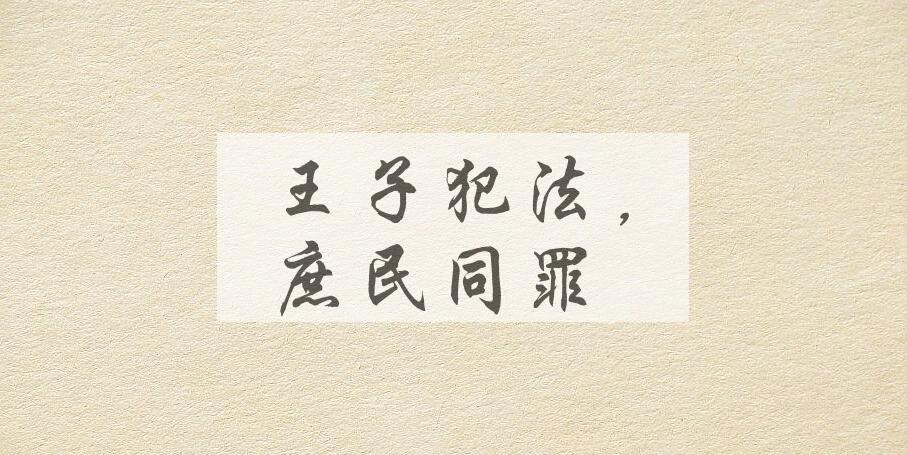 王子犯法，
庶民同罪